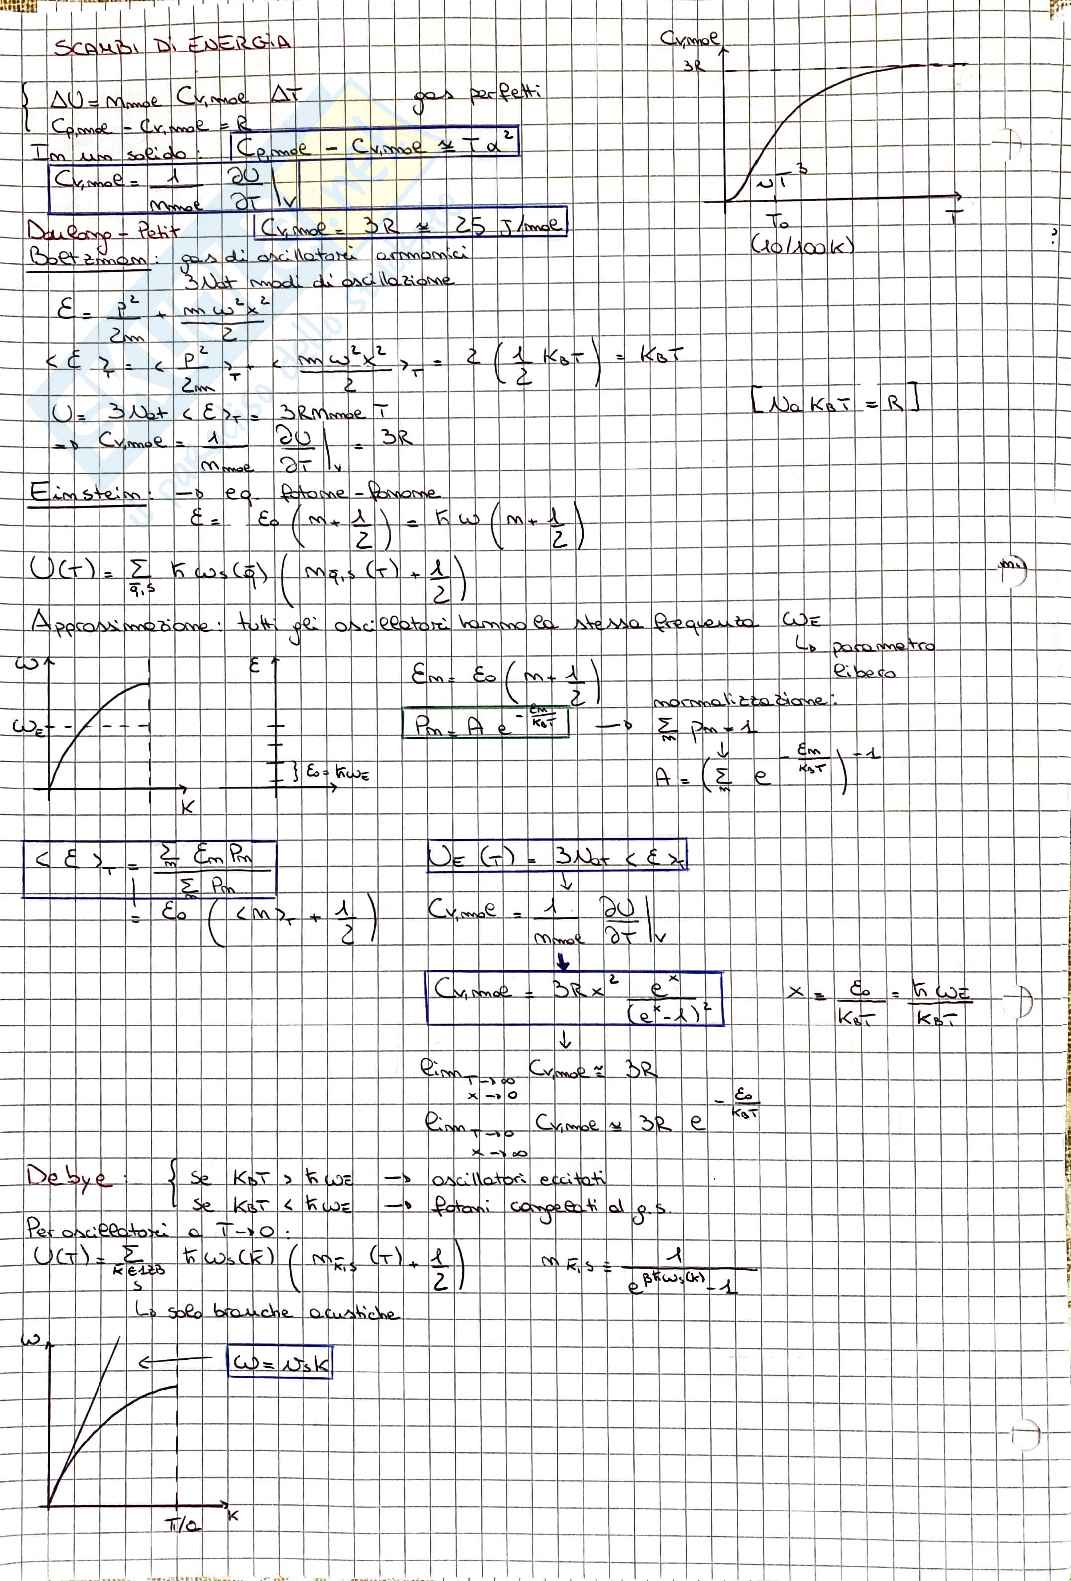 SCAMBI DI ENERGIA
ΔU = n_mol C_v,mol ΔT gas perfetti
C_p,mol - C_v,mol = R
In un solido: C_p,mol - C_v,mol ≃ T α²
C_v,mol = 1/n_mol ∂U/∂T |_v
Doulong-Petit C_v,mol = 3R ≃ 25 J/mol
C_v,mol
3R
~T³
T
T₀
(10/100K)
?
Boltzman: gas di oscillatori armonici
3Nat modi di oscillazione
ε = p²/2m + mω²x²/2
<ε>_T = <p²/2m>_T + <mω²x²/2>_T = 2 (1/2 K_BT) = K_BT
U = 3Nat <ε>_T = 3R n_mol T
[Na K_BT = R]
→ C_v,mol = 1/n_mol ∂U/∂T |_v = 3R
Einstein: → eq. fotone-fonone
ε = ε₀ (n + 1/2) = ħω (n + 1/2)
U(T) = Σ_q̄,s ħω_s(q̄) (n_q̄,s(T) + 1/2)
Approssimazione: tutti gli oscillatori hanno la stessa frequenza ω_E
↳ parametro
libero
ω
ω_E
K
ε
} ε₀ = ħω_E
ε_n = ε₀ (n + 1/2)
P_n = A e^(-ε_n/K_BT) →
normalizzazione:
Σ_n p_n = 1
↓
A = (Σ_n e^(-ε_n/K_BT))^-1
<ε>_T = Σ_n ε_n P_n / Σ_n P_n
= ε₀ (<n>_T + 1/2)
U_E(T) = 3Nat <ε>_T
↓
C_v,mol = 1/n_mol ∂U/∂T |_v
↓
C_v,mol = 3R x² e^x/(e^x-1)² x = ε₀/K_BT = ħω_E/K_BT
↓
lim_(T→∞, x→0) C_v,mol ≃ 3R
lim_(T→0, x→∞) C_v,mol ≃ 3R e^(-ε₀/K_BT)
Debye: { se K_BT > ħω_E → oscillatori eccitati
se K_BT < ħω_E → fotoni congelati al g.s.
Per oscillatori a T→0:
U(T) = Σ_(k̄∈1ZB, s) ħω_s(k̄) (n_k̄,s(T) + 1/2) n_k̄,s = 1/(e^(βħω_s(k)) - 1)
↳ solo branche acustiche
ω
← ω = v_s k
π/a
K